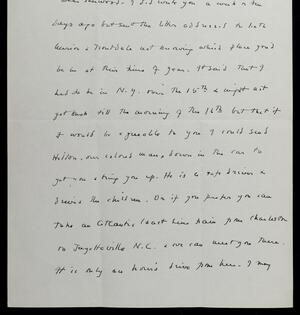 Dear Leonard: I did write you a week or ten
days ago but sent the letter addressed to both
& not knowing which place you'd
be in at this time of year. It said that I
had to be in N.Y. over the 15th & might not
get back till the morning of the 16th but that if
it would be agreeable to you I could send
our colored man, down in the car to
get you & bring you up. He is a safe driver &
drives the children. Or if you prefer you can
take an Atlantic Coast Line train from Charleston
to Fayetteville N.C. & we can meet you there.
It is only an hour's drive from here. I may